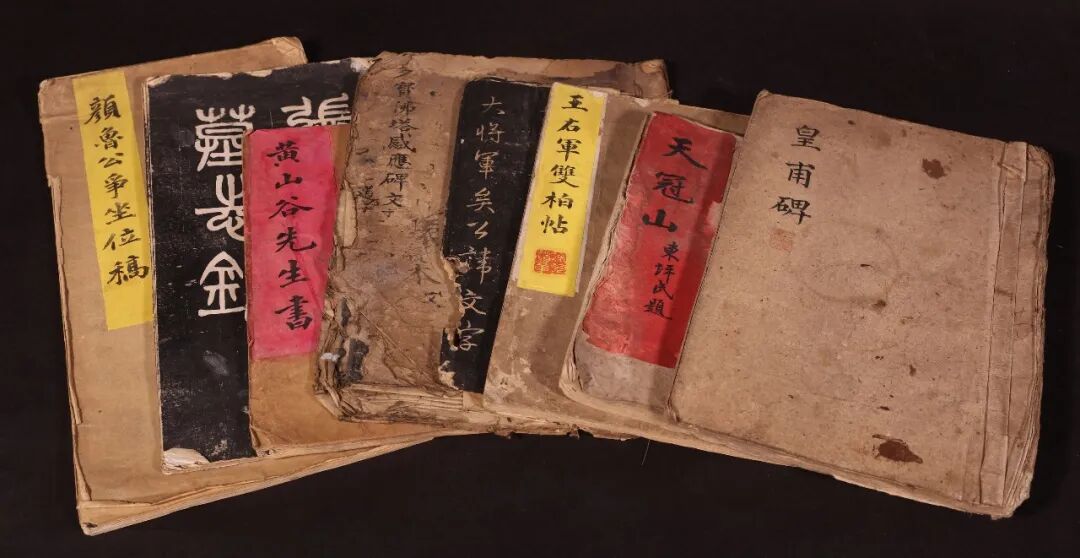 顏魯公爭坐位稿
張
墓志
黃山谷先生書
多寶佛塔感應碑文
大將軍矣公諱文字
王右軍雙柏帖
天冠山
東坪氏題
皇甫碑